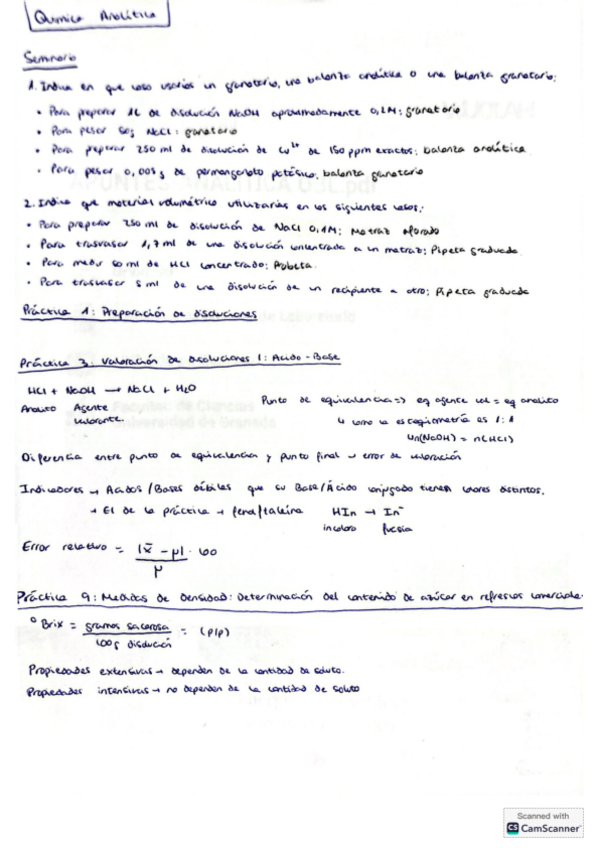 Química Analítica
Seminario
1. Indica en que caso usarías un granatario, una balanza analítica o una balanza granatario:
• Para preparar 1L de disolución NaOH aproximadamente 0,2M: granatario
• Para pesar 50g NaCl: granatario
• Para preparar 250 ml de disolución de Cu²⁺ de 150 ppm exactos: balanza analítica
• Para pesar 0,005 g de permanganato potásico, balanza granatario
2. Indica que material volumétrico utilizarías en los siguientes casos:
• Para preparar 250 ml de disolución de NaCl 0,1M: Matraz aforado
• Para trasvasar 1,7 ml de una disolución concentrada a un matraz: Pipeta graduada
• Para medir 50 ml de HCl concentrado: Probeta.
• Para trasvasar 5 ml de una disolución de un recipiente a otro: Pipeta graduada
Práctica 1: Preparación de disoluciones
Práctica 3: Valoración de disoluciones 1: Acido-Base
HCl + NaOH → NaCl + H₂O
Analito Agente valorante
Punto de equivalencia => eq agente val = eq analito
↳ como la estequiometría es 1:1
n(NaOH) = n(HCl)
Diferencia entre punto de equivalencia y punto final → error de valoración
Indicadores → Acidos/Bases débiles que su Base/Ácido conjugado tienen colores distintos.
→ El de la práctica → fenolftaleína HIn → In⁻
incoloro fucsia
Error relativo = |x̄ - μ| / μ · 100
Práctica 9: Medidas de densidad: Determinación del contenido de azúcar en refrescos comerciales
°Brix = gramos sacarosa / 100g disolución = (p/p)
Propiedades extensivas → dependen de la cantidad de soluto.
Propiedades intensivas → no dependen de la cantidad de soluto
Scanned with
CS CamScanner